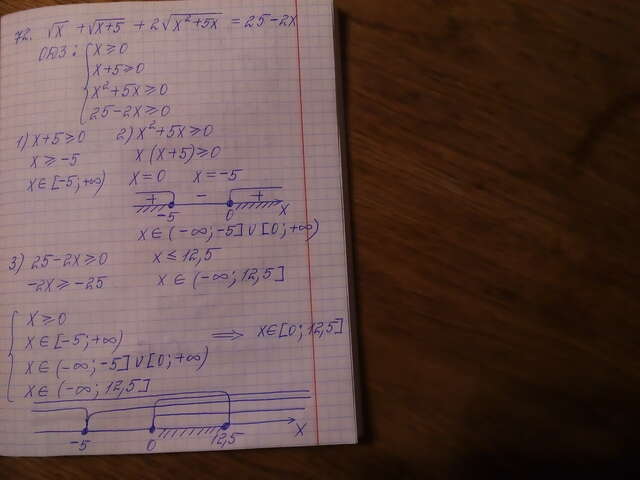 72. √x + √x+5 + 2√x²+5x = 25-2x
ОДЗ: { x ≥ 0
x+5 ≥ 0
x²+5x ≥ 0
25-2x ≥ 0
1) x+5 ≥ 0 2) x²+5x ≥ 0
x ≥ -5 x(x+5) ≥ 0
x ∈ [-5; +∞) x=0 x=-5
+ - +
-5 0 x
x ∈ (-∞; -5] ∪ [0; +∞)
3) 25-2x ≥ 0 x ≤ 12,5
-2x ≥ -25 x ∈ (-∞; 12,5]
{ x ≥ 0
x ∈ [-5; +∞) ⟹ x ∈ [0; 12,5]
x ∈ (-∞; -5] ∪ [0; +∞)
x ∈ (-∞; 12,5]
-5 0 12,5 x